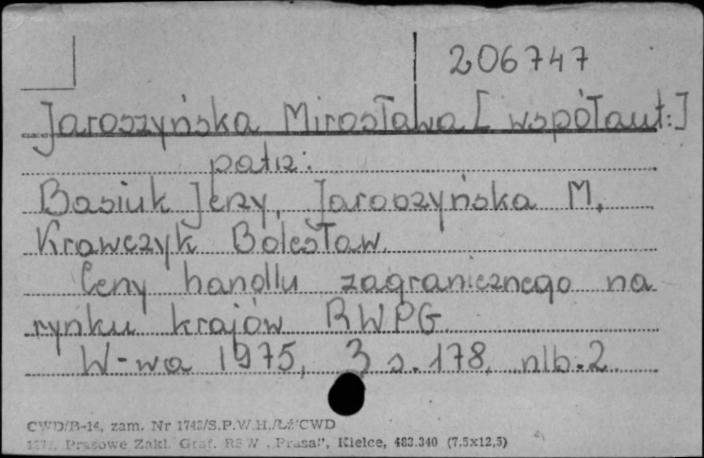 206747
Jaroszyńska Mirosława [współaut:]
patrz:
Basiuk Jerzy, Jaroszyńska M,
Krawczyk Bolesław.
Ceny handlu zagranicznego na
rynku krajów RWPG
W-wa 1975, 3 s. 178, nlb. 2
CWD/B-14, zam. Nr 1743/S.P.W.H./Lż/CWD
Prasowe Zakł. Graf. RSW „Prasa”, Kielce, 483.340 (7,5x12,5)